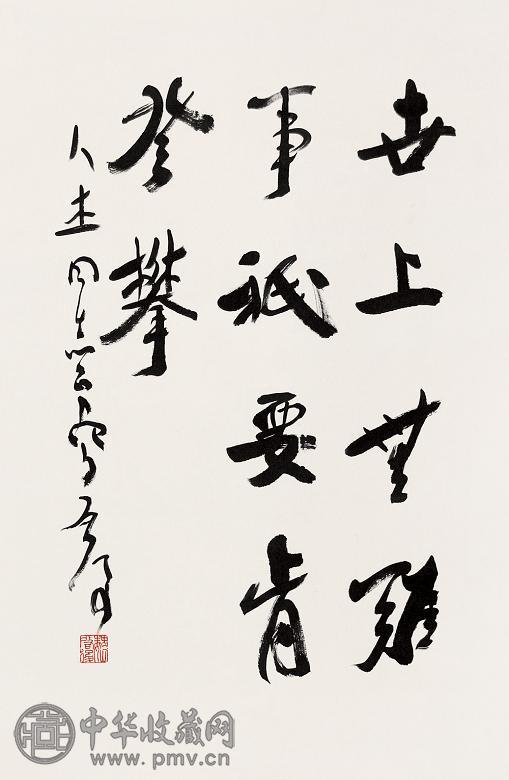 世上無難
事祇要肯
登攀
同志
中华收藏网
www.pmv.cn